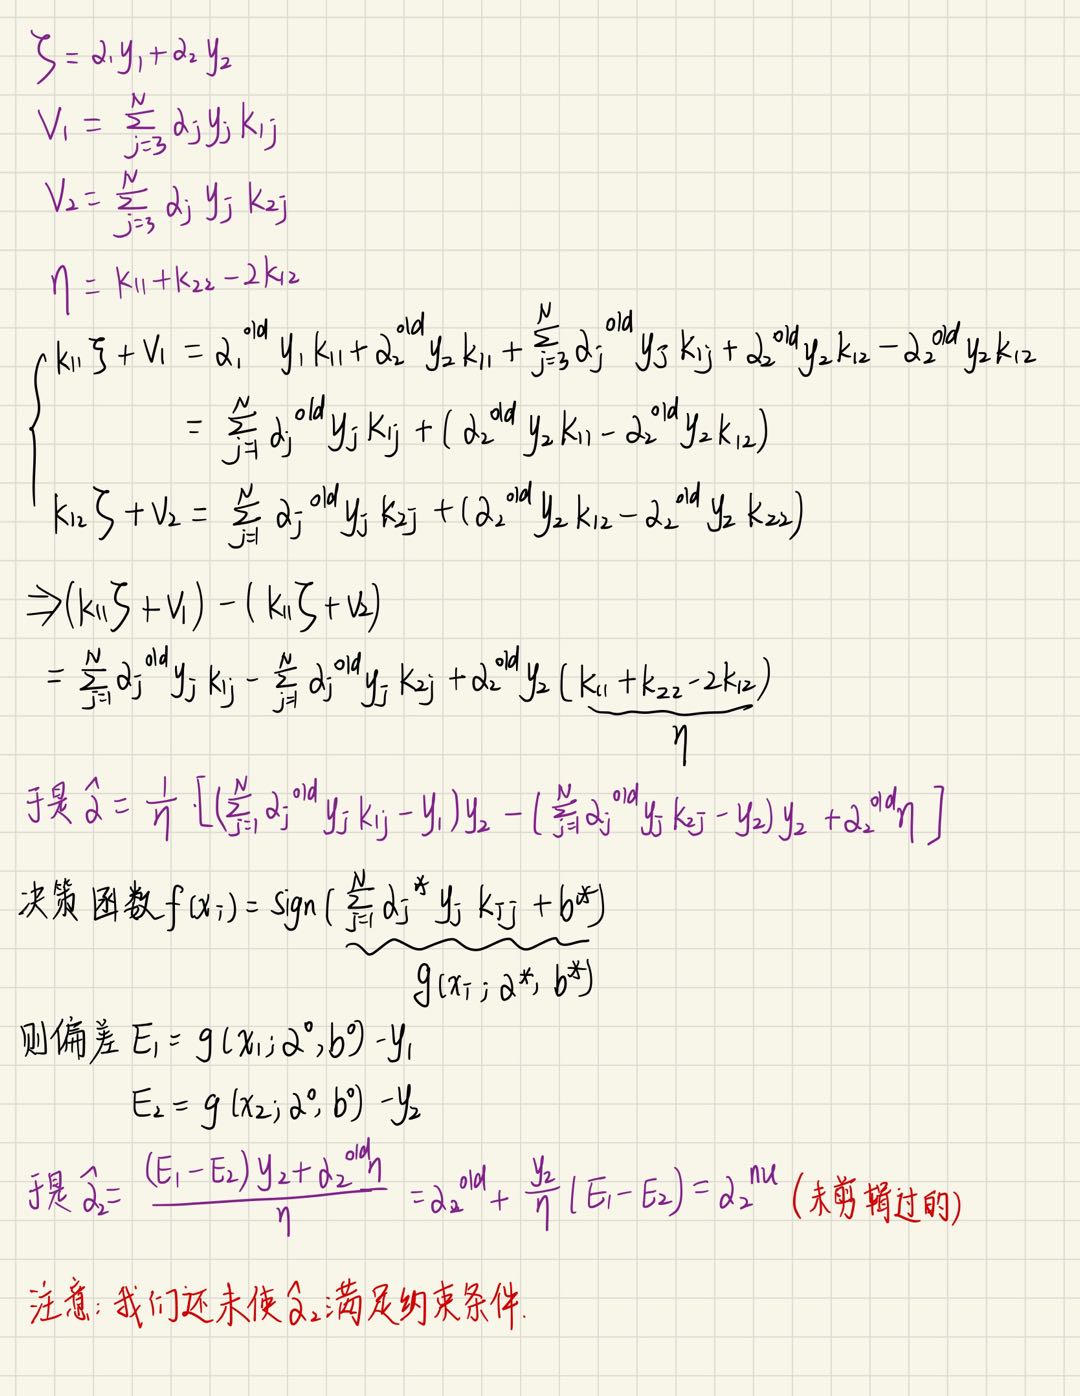 ζ = α₁y₁ + α₂y₂
V₁ = Σ_{j=3}^{N} αⱼyⱼk₁ⱼ
V₂ = Σ_{j=3}^{N} αⱼ yⱼ k₂ⱼ
η = k₁₁ + k₂₂ − 2k₁₂
{ k₁₁ζ + V₁ = α₁^{old} y₁k₁₁ + α₂^{old} y₂k₁₁ + Σ_{j=3}^{N} αⱼ^{old} yⱼ k₁ⱼ + α₂^{old} y₂k₁₂ − α₂^{old} y₂k₁₂
= Σ_{j=1}^{N} αⱼ^{old} yⱼ k₁ⱼ + (α₂^{old} y₂k₁₁ − α₂^{old} y₂k₁₂)
k₁₂ζ + V₂ = Σ_{j=1}^{N} αⱼ^{old} yⱼ k₂ⱼ + (α₂^{old} y₂k₁₂ − α₂^{old} y₂ k₂₂)
⇒ (k₁₁ζ + V₁) − (k₁₁ζ + V₂)
= Σ_{j=1}^{N} αⱼ^{old} yⱼ k₁ⱼ − Σ_{j=1}^{N} αⱼ^{old} yⱼ k₂ⱼ + α₂^{old} y₂ (k₁₁ + k₂₂ − 2k₁₂)
η
于是 α̂ = 1/η · [(Σ_{j=1}^{N} αⱼ^{old} yⱼ k₁ⱼ − y₁) y₂ − (Σ_{j=1}^{N} αⱼ^{old} yⱼ k₂ⱼ − y₂) y₂ + α₂^{old} η]
决策函数 f(xᵢ) = sign(Σ_{j=1}^{N} αⱼ* yⱼ kᵢⱼ + b*)
g(xᵢ; α*, b*)
则偏差 E₁ = g(x₁; α⁰, b⁰) − y₁
E₂ = g(x₂; α⁰, b⁰) − y₂
于是 α̂₂ = ((E₁ − E₂) y₂ + α₂^{old} η)/η = α₂^{old} + y₂/η (E₁ − E₂) = α₂^{nu} (未剪辑过的)
注意: 我们还未使 α̂₂ 满足约束条件.